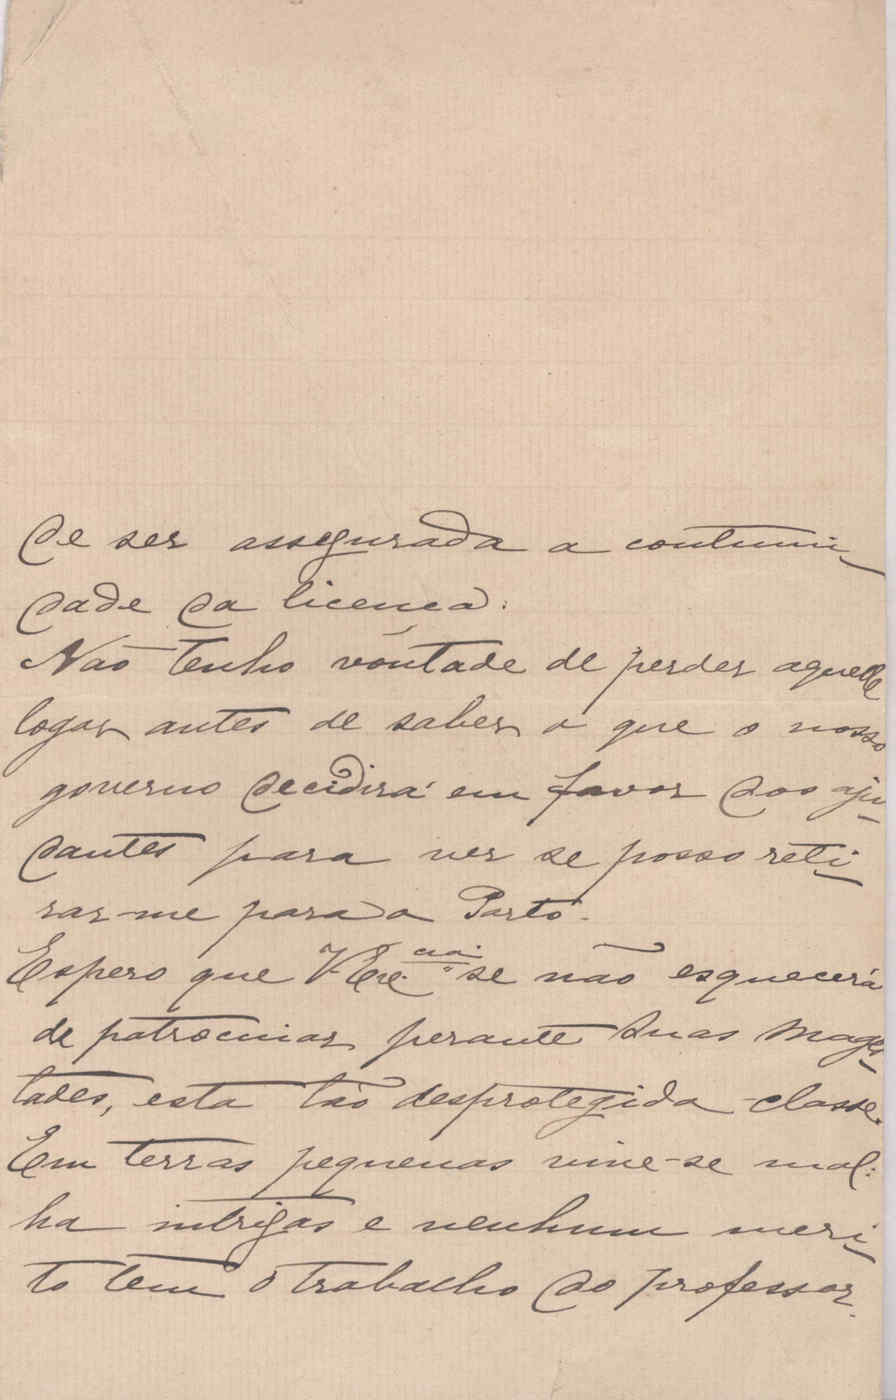 de ser assegurada a continui-
dade da licença.
Não tenho vontade de perder aquelle
logar antes de saber o que o nosso
governo decidirá em favor dos aju-
dantes para ver se posso reti-
rar-me para o Porto.
Espero que V. Exc.cia se não esquecerá
de patrocinar perante Suas Mages-
tades, esta tão desprotegida classe.
Em terras pequenas vive-se mal:
ha intrigas e nenhum meri-
to tem o trabalho do professor.